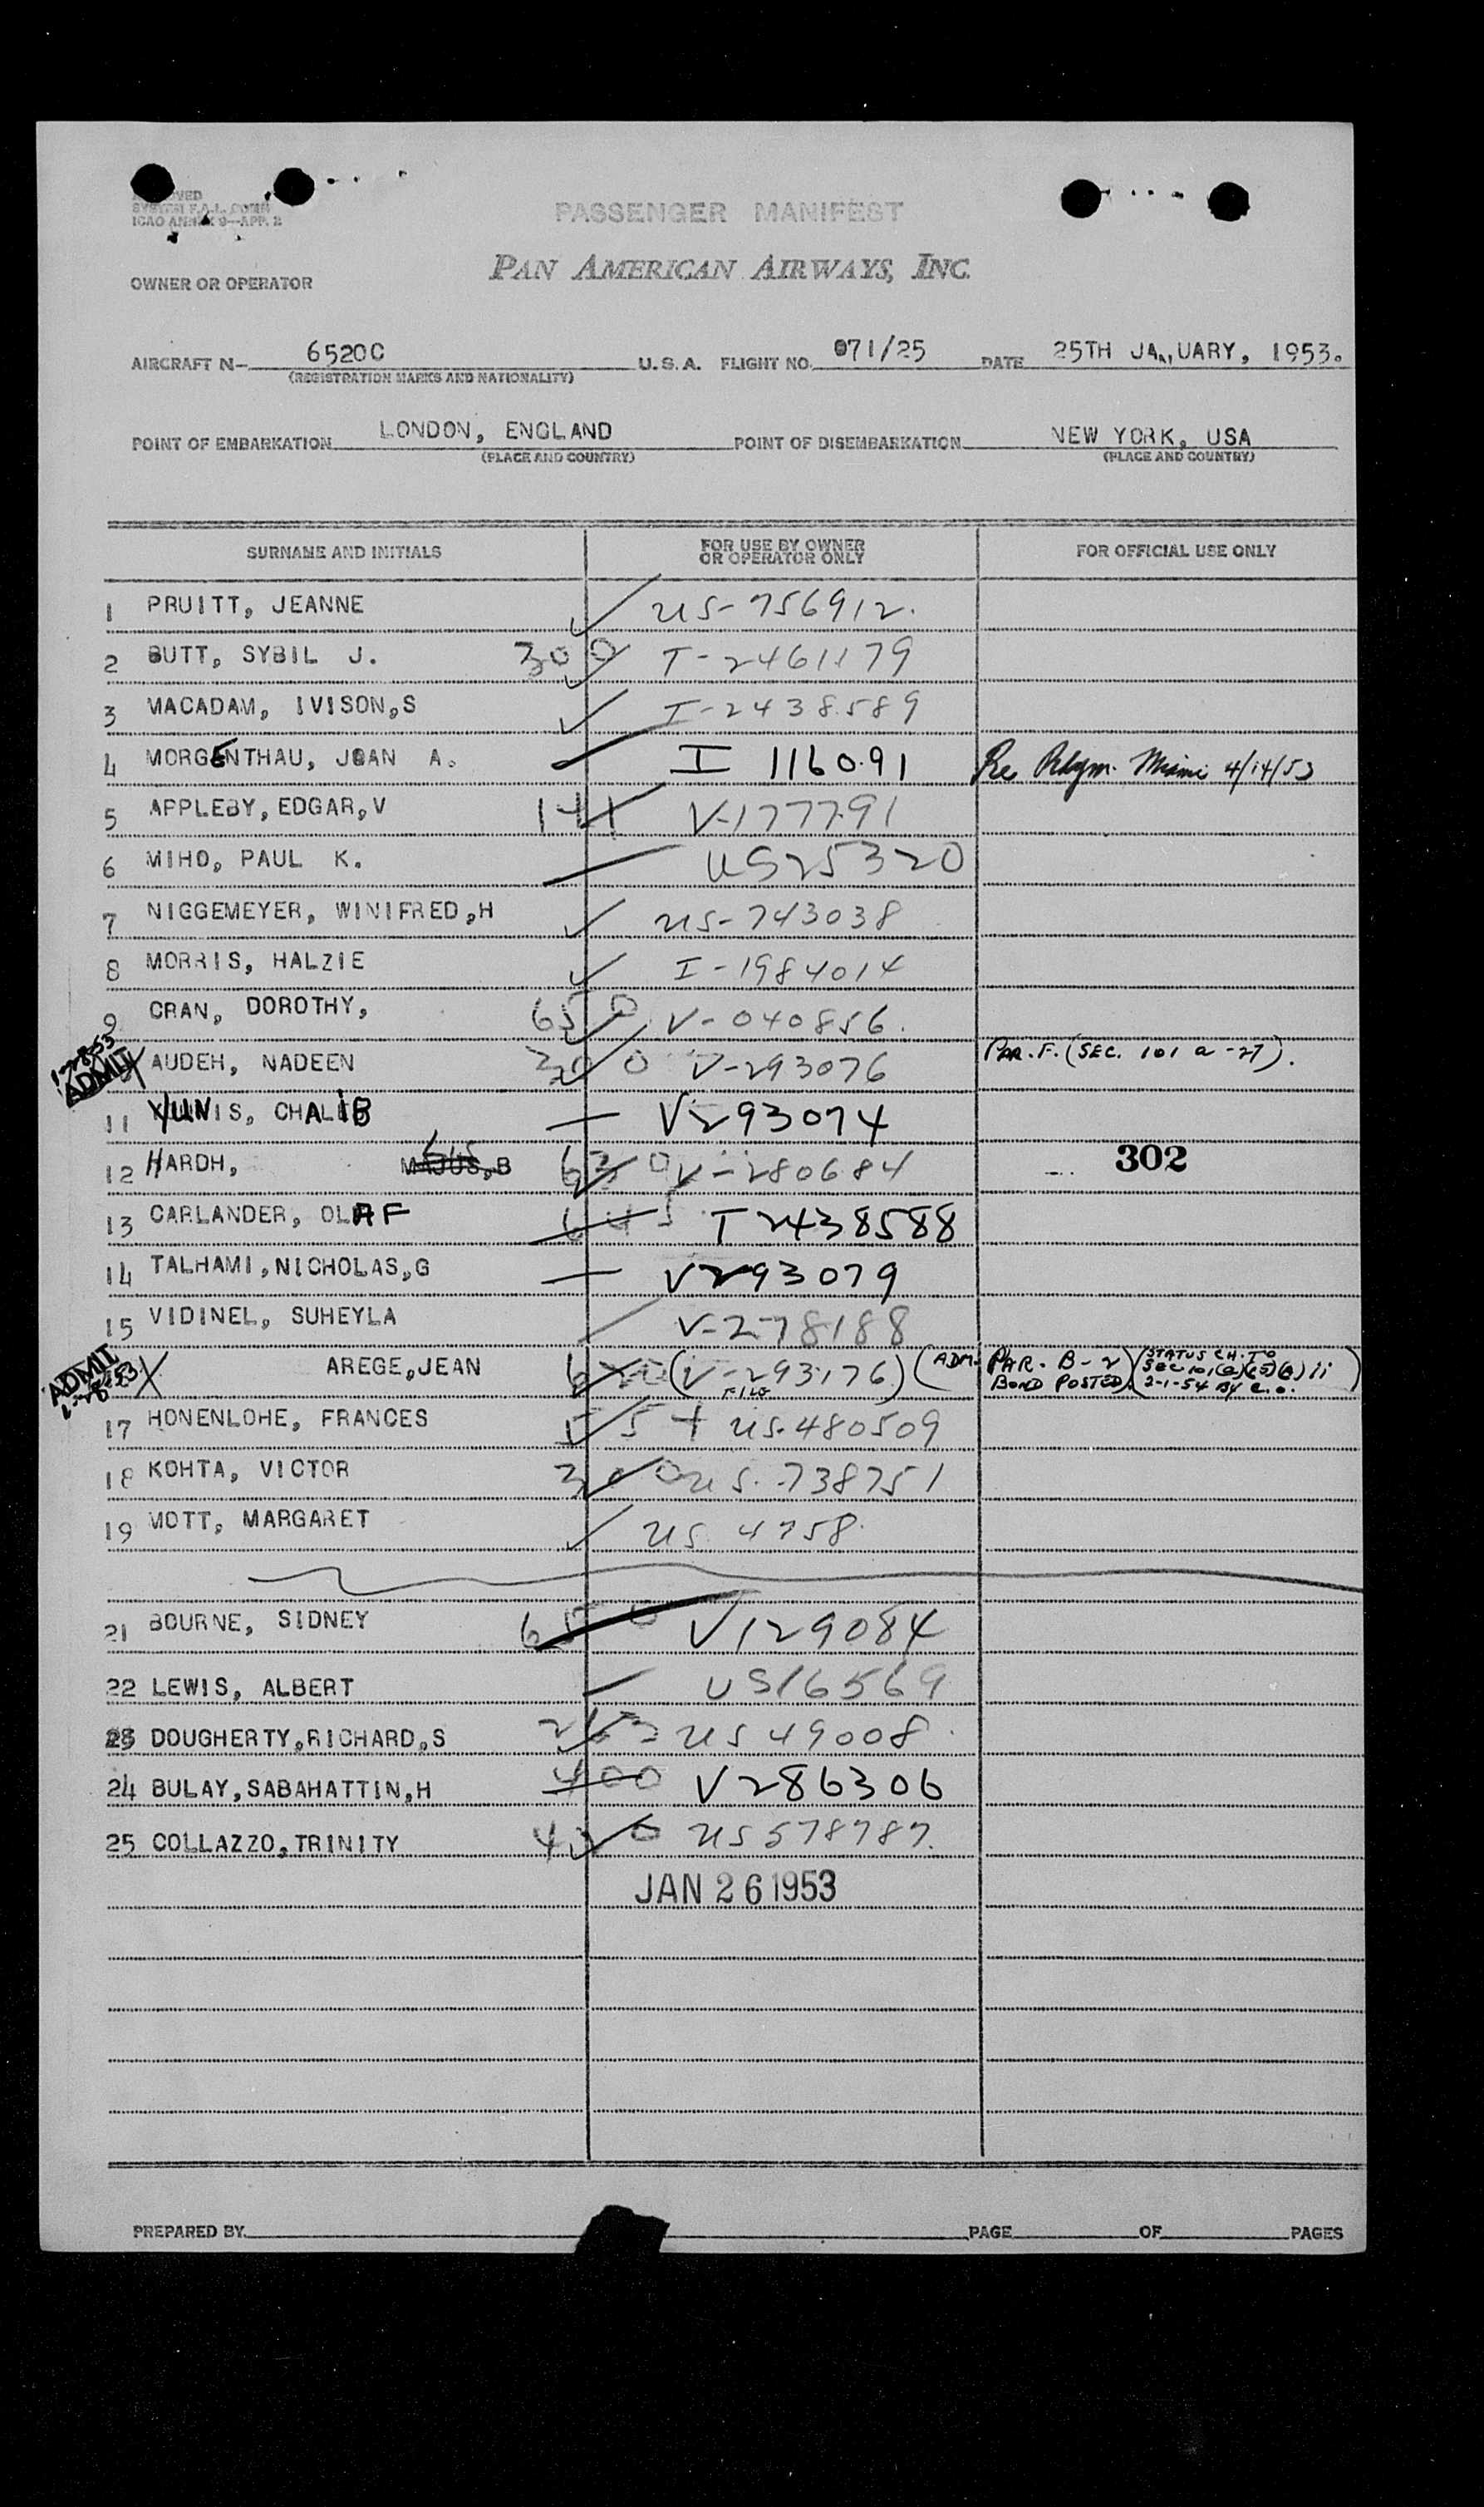 SYSTEM F.A.L. COMM
ICAO ANNEX 9—APP. 2
PASSENGER MANIFEST
PAN AMERICAN AIRWAYS, INC.
OWNER OR OPERATOR
AIRCRAFT N- 6520C U.S.A. FLIGHT NO. 071/25 DATE 25TH JANUARY, 1953.
(REGISTRATION MARKS AND NATIONALITY)
POINT OF EMBARKATION LONDON, ENGLAND POINT OF DISEMBARKATION NEW YORK, USA
(PLACE AND COUNTRY) (PLACE AND COUNTRY)
SURNAME AND INITIALS FOR USE BY OWNER OR OPERATOR ONLY FOR OFFICIAL USE ONLY
1 PRUITT, JEANNE US-756912.
2 BUTT, SYBIL J. 300 T-2461179
3 MACADAM, IVISON,S I-2438589
4 MORGENTHAU, JOAN A. I 116091 Re Miami 4/14/53
5 APPLEBY, EDGAR,V 141 V-177791
6 MIHO, PAUL K. US25320
7 NIGGEMEYER, WINIFRED,H US-743038
8 MORRIS, HALZIE I-1984014
9 CRAN, DOROTHY, 650 V-040856.
1-28-53 ADMIT AUDEH, NADEEN 300 V-293076 PAR. F. (SEC. 101 a-27).
11 YUNIS, CHALIB V293074
12 HARDH, MAJUS,B 630 V-280684 302
13 CARLANDER, OLAF 645 T 2438588
14 TALHAMI,NICHOLAS,G V293079
15 VIDINEL, SUHEYLA V-278188
ADMIT AREGE,JEAN (V-293176) FILE (ADM. PAR. B-2 BOND POSTED) (STATUS CH. TO 2-1-54 BY C.O.)
17 HONENLOHE, FRANCES 55+ US-480509
18 KOHTA, VICTOR 300 US-738751
19 MOTT, MARGARET US 4758.
21 BOURNE, SIDNEY 650 V129084
22 LEWIS, ALBERT US16569
23 DOUGHERTY,RICHARD,S US 49008.
24 BULAY,SABAHATTIN,H 400 V286306
25 COLLAZZO,TRINITY US 578787.
JAN 26 1953
PREPARED BY PAGE OF PAGES